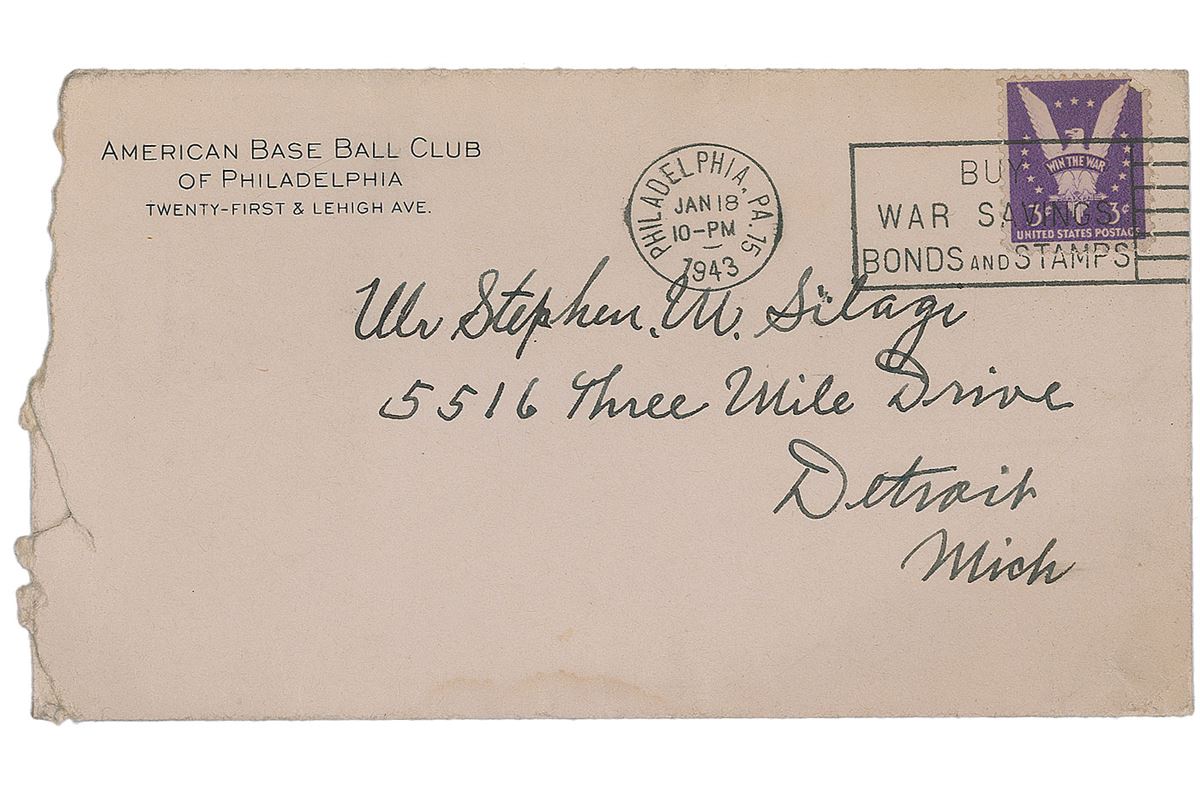 AMERICAN BASE BALL CLUB
OF PHILADELPHIA
TWENTY-FIRST & LEHIGH AVE.
PHILADELPHIA, PA. 15
JAN 18
10-PM
1943
BUY
WAR SAVINGS
BONDS AND STAMPS
WIN THE WAR
3¢ 3¢
UNITED STATES POSTAGE
Mr Stephen. M. Silagi
5516 Three Mile Drive
Detroit
Mich